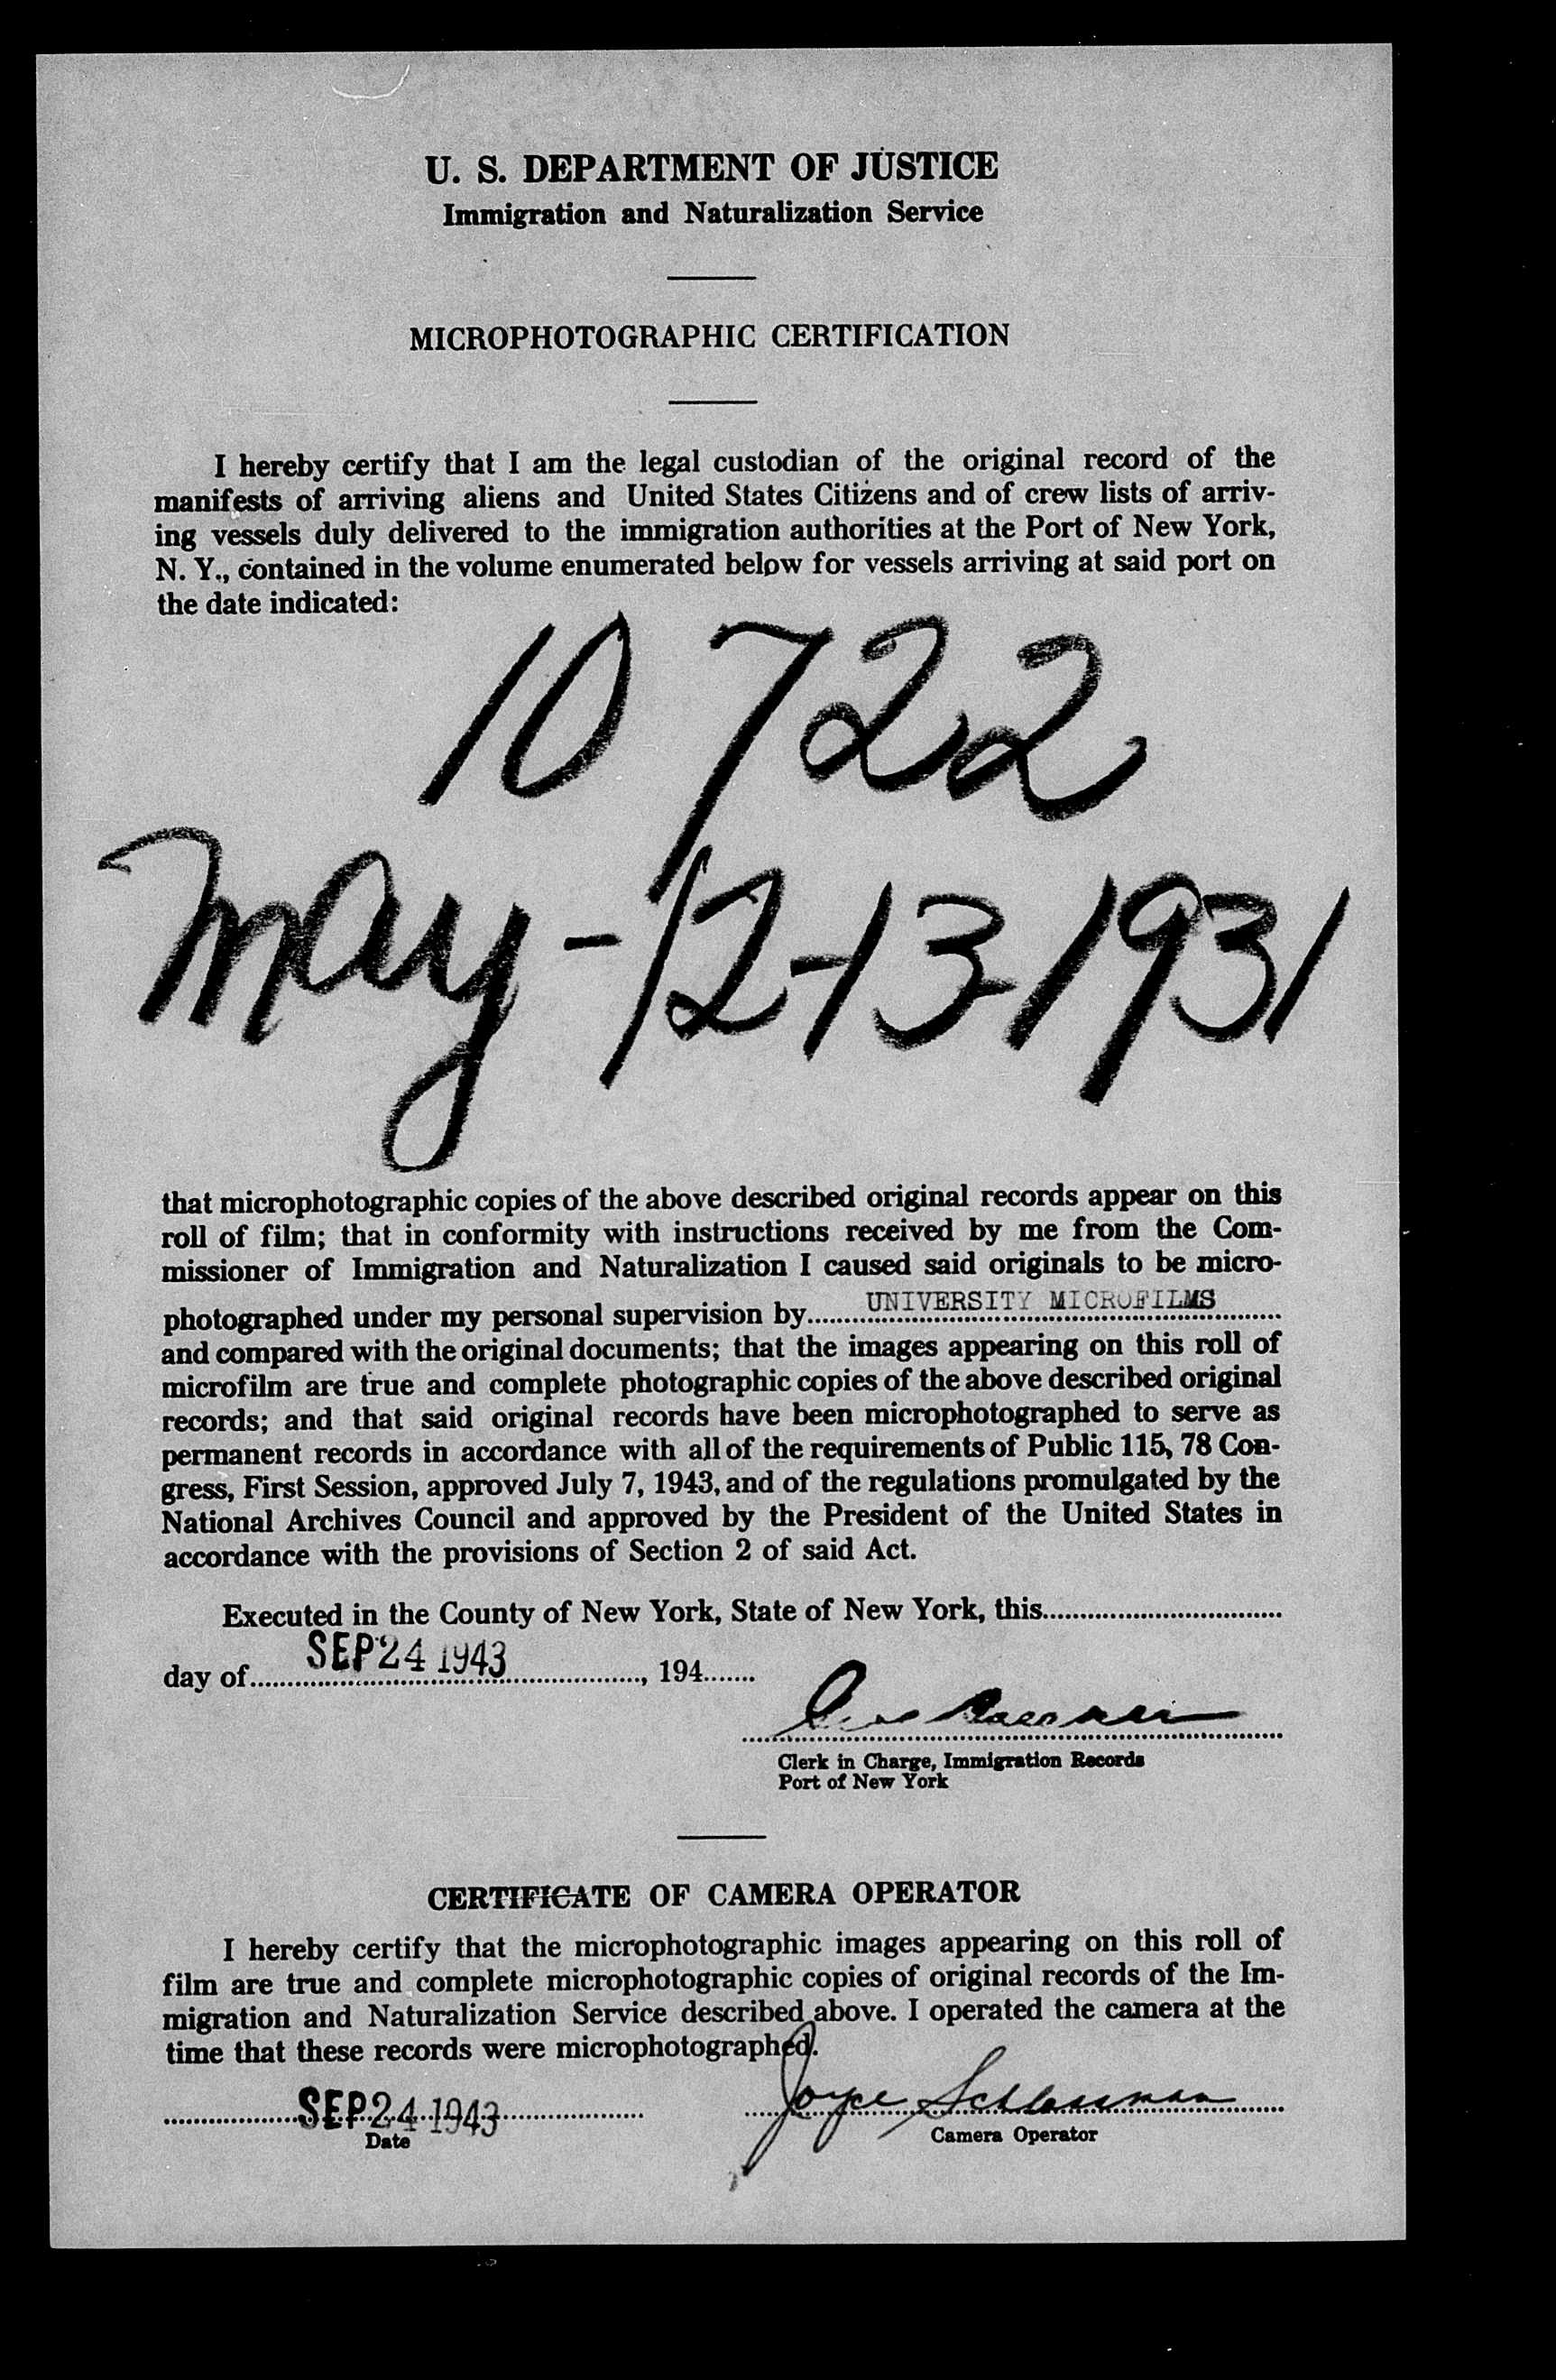 U. S. DEPARTMENT OF JUSTICE
Immigration and Naturalization Service
MICROPHOTOGRAPHIC CERTIFICATION
I hereby certify that I am the legal custodian of the original record of the
manifests of arriving aliens and United States Citizens and of crew lists of arriv-
ing vessels duly delivered to the immigration authorities at the Port of New York,
N. Y., contained in the volume enumerated below for vessels arriving at said port on
the date indicated:
10722
May-12-13-1931
that microphotographic copies of the above described original records appear on this
roll of film; that in conformity with instructions received by me from the Com-
missioner of Immigration and Naturalization I caused said originals to be micro-
photographed under my personal supervision by UNIVERSITY MICROFILMS
and compared with the original documents; that the images appearing on this roll of
microfilm are true and complete photographic copies of the above described original
records; and that said original records have been microphotographed to serve as
permanent records in accordance with all of the requirements of Public 115, 78 Con-
gress, First Session, approved July 7, 1943, and of the regulations promulgated by the
National Archives Council and approved by the President of the United States in
accordance with the provisions of Section 2 of said Act.
Executed in the County of New York, State of New York, this
day of SEP 24 1943, 194
Clerk in Charge, Immigration Records
Port of New York
CERTIFICATE OF CAMERA OPERATOR
I hereby certify that the microphotographic images appearing on this roll of
film are true and complete microphotographic copies of original records of the Im-
migration and Naturalization Service described above. I operated the camera at the
time that these records were microphotographed.
SEP 24 1943 Joyce
Date Camera Operator